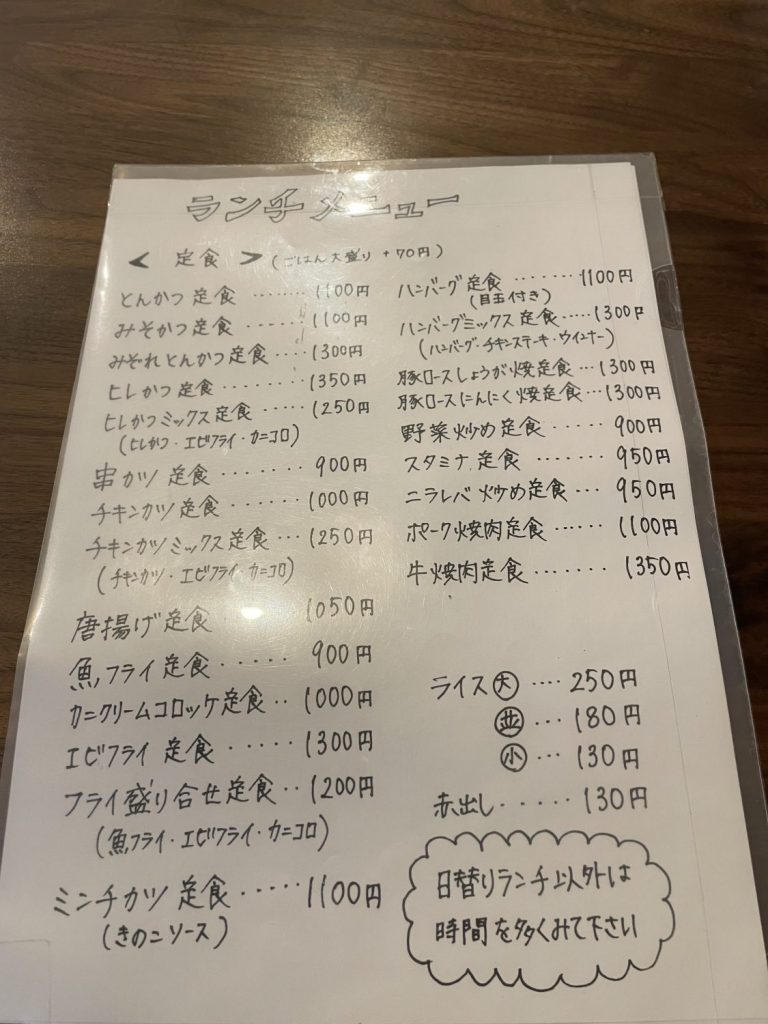 ランチメニュー
< 定食 > (ごはん大盛り +70円)
とんかつ定食 ‥‥‥ 1100円
みそかつ定食 ‥‥‥ 1100円
みぞれとんかつ定食 ‥ 1300円
ヒレかつ定食 ‥‥‥‥ 1350円
ヒレかつミックス定食 ‥‥ 1250円
(ヒレかつ・エビフライ・カニコロ)
串カツ定食 ‥‥‥ 900円
チキンカツ定食 ‥‥ 1000円
チキンカツミックス定食 … 1250円
(チキンカツ・エビフライ・カニコロ)
唐揚げ定食 1050円
魚フライ定食 ・・・・・ 900円
カニクリームコロッケ定食 ‥ 1000円
エビフライ定食 ・・・・・ 1300円
フライ盛り合せ定食 ‥ 1200円
(魚フライ・エビフライ・カニコロ)
ミンチカツ定食 ・・・・・ 1100円
(きのこソース)
ハンバーグ定食 ‥‥‥‥ 1100円
(目玉付き)
ハンバーグミックス定食 ‥‥ 1300円
(ハンバーグ・チキンステーキ・ウインナー)
豚ロースしょうが焼定食 … 1300円
豚ロースにんにく焼定食 … 1300円
野菜炒め定食 ・・・・・ 900円
スタミナ定食 ‥‥‥ 950円
ニラレバ炒め定食 … 950円
ポーク焼肉定食 ‥‥‥ 1100円
牛焼肉定食 ・・・・・・・ 1350円
ライス大 ‥‥ 250円
並 … 180円
小 … 130円
赤出し・・・・・ 130円
日替りランチ以外は
時間を多くみて下さい